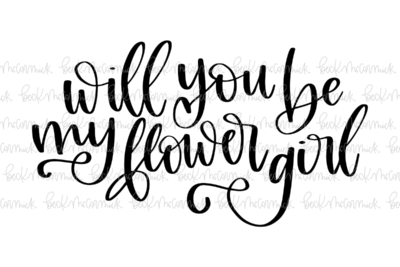 will you be
my flower girl